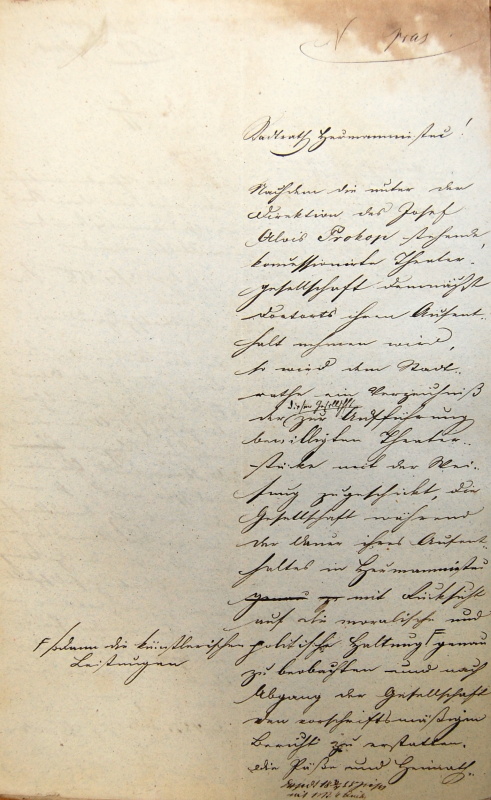 N pras
Stadtrath Heřmanmiestec!
Nachdem die unter der
Direktion des Josef
Alois Prokop stehende
konzessionirte Theater-
gesellschaft demnächst
dortorts ihren Aufent-
halt nehmen wird,
so wird dem Stadt-
rathe ein Verzeichniß
der dieser Gesellschft zur Aufführung
bewilligten Theater-
stücke mit der Wei-
sung zugeschickt, die
Gesellschaft während
der Dauer ihres Aufent-
haltes in Heřmanmiestec
genau mit Rücksicht
auf die moralische und
politische Haltung F genau
F sodann die künstlerischen
Leistungen
zu beobachten und nach
Abgang der Gesellschaft
den vorschriftsmäßigen
Bericht zu erstatten.
Die Päße und Heimath-